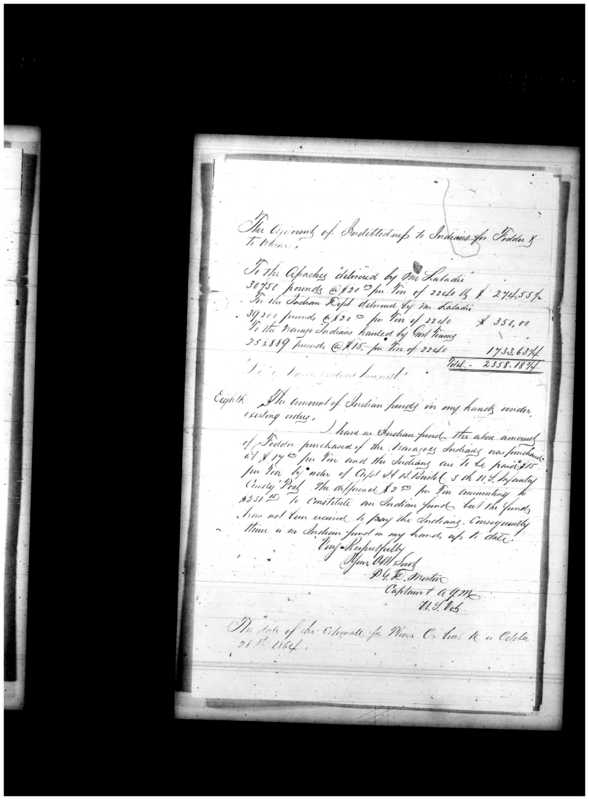 The Amount of Indebtedness to Indians for Fodder &
To Whom.
To the Apaches delivered by Mr Labadie
30750 pounds @ $20 00 per Ton of 2240 lb $ 274.55
For the Indian Dept delivered by Mr Labadie
39200 pounds @ $20 00 per Ton of 2240 $ 350,00
To the Navajo Indians hauled by Govt Teams
252889 pounds @ $15 per Ton of 2240 1733.63
Total - 2358.18
Eighth The amount of Indian funds in my hands under
existing orders.
I have no Indian fund the above amount
of Fodder purchased of the Navajoe Indians was purchased
at $17 00 per Ton and the Indians are to be paid $15
per Ton by order of Capt H B Bristol 5th U.S. Infantry
Comdg Post. The difference $2 00 per Ton amounting to
to constitute an Indian fund but the funds
have not been received to pay the Indians. Consequently
there is no Indian fund in my hands up to date.
Very Respectfully
Your Obt Servt
Captain & A.Q.M.
U.S. Vols
The date of the Estimate for is October
28th 1864.